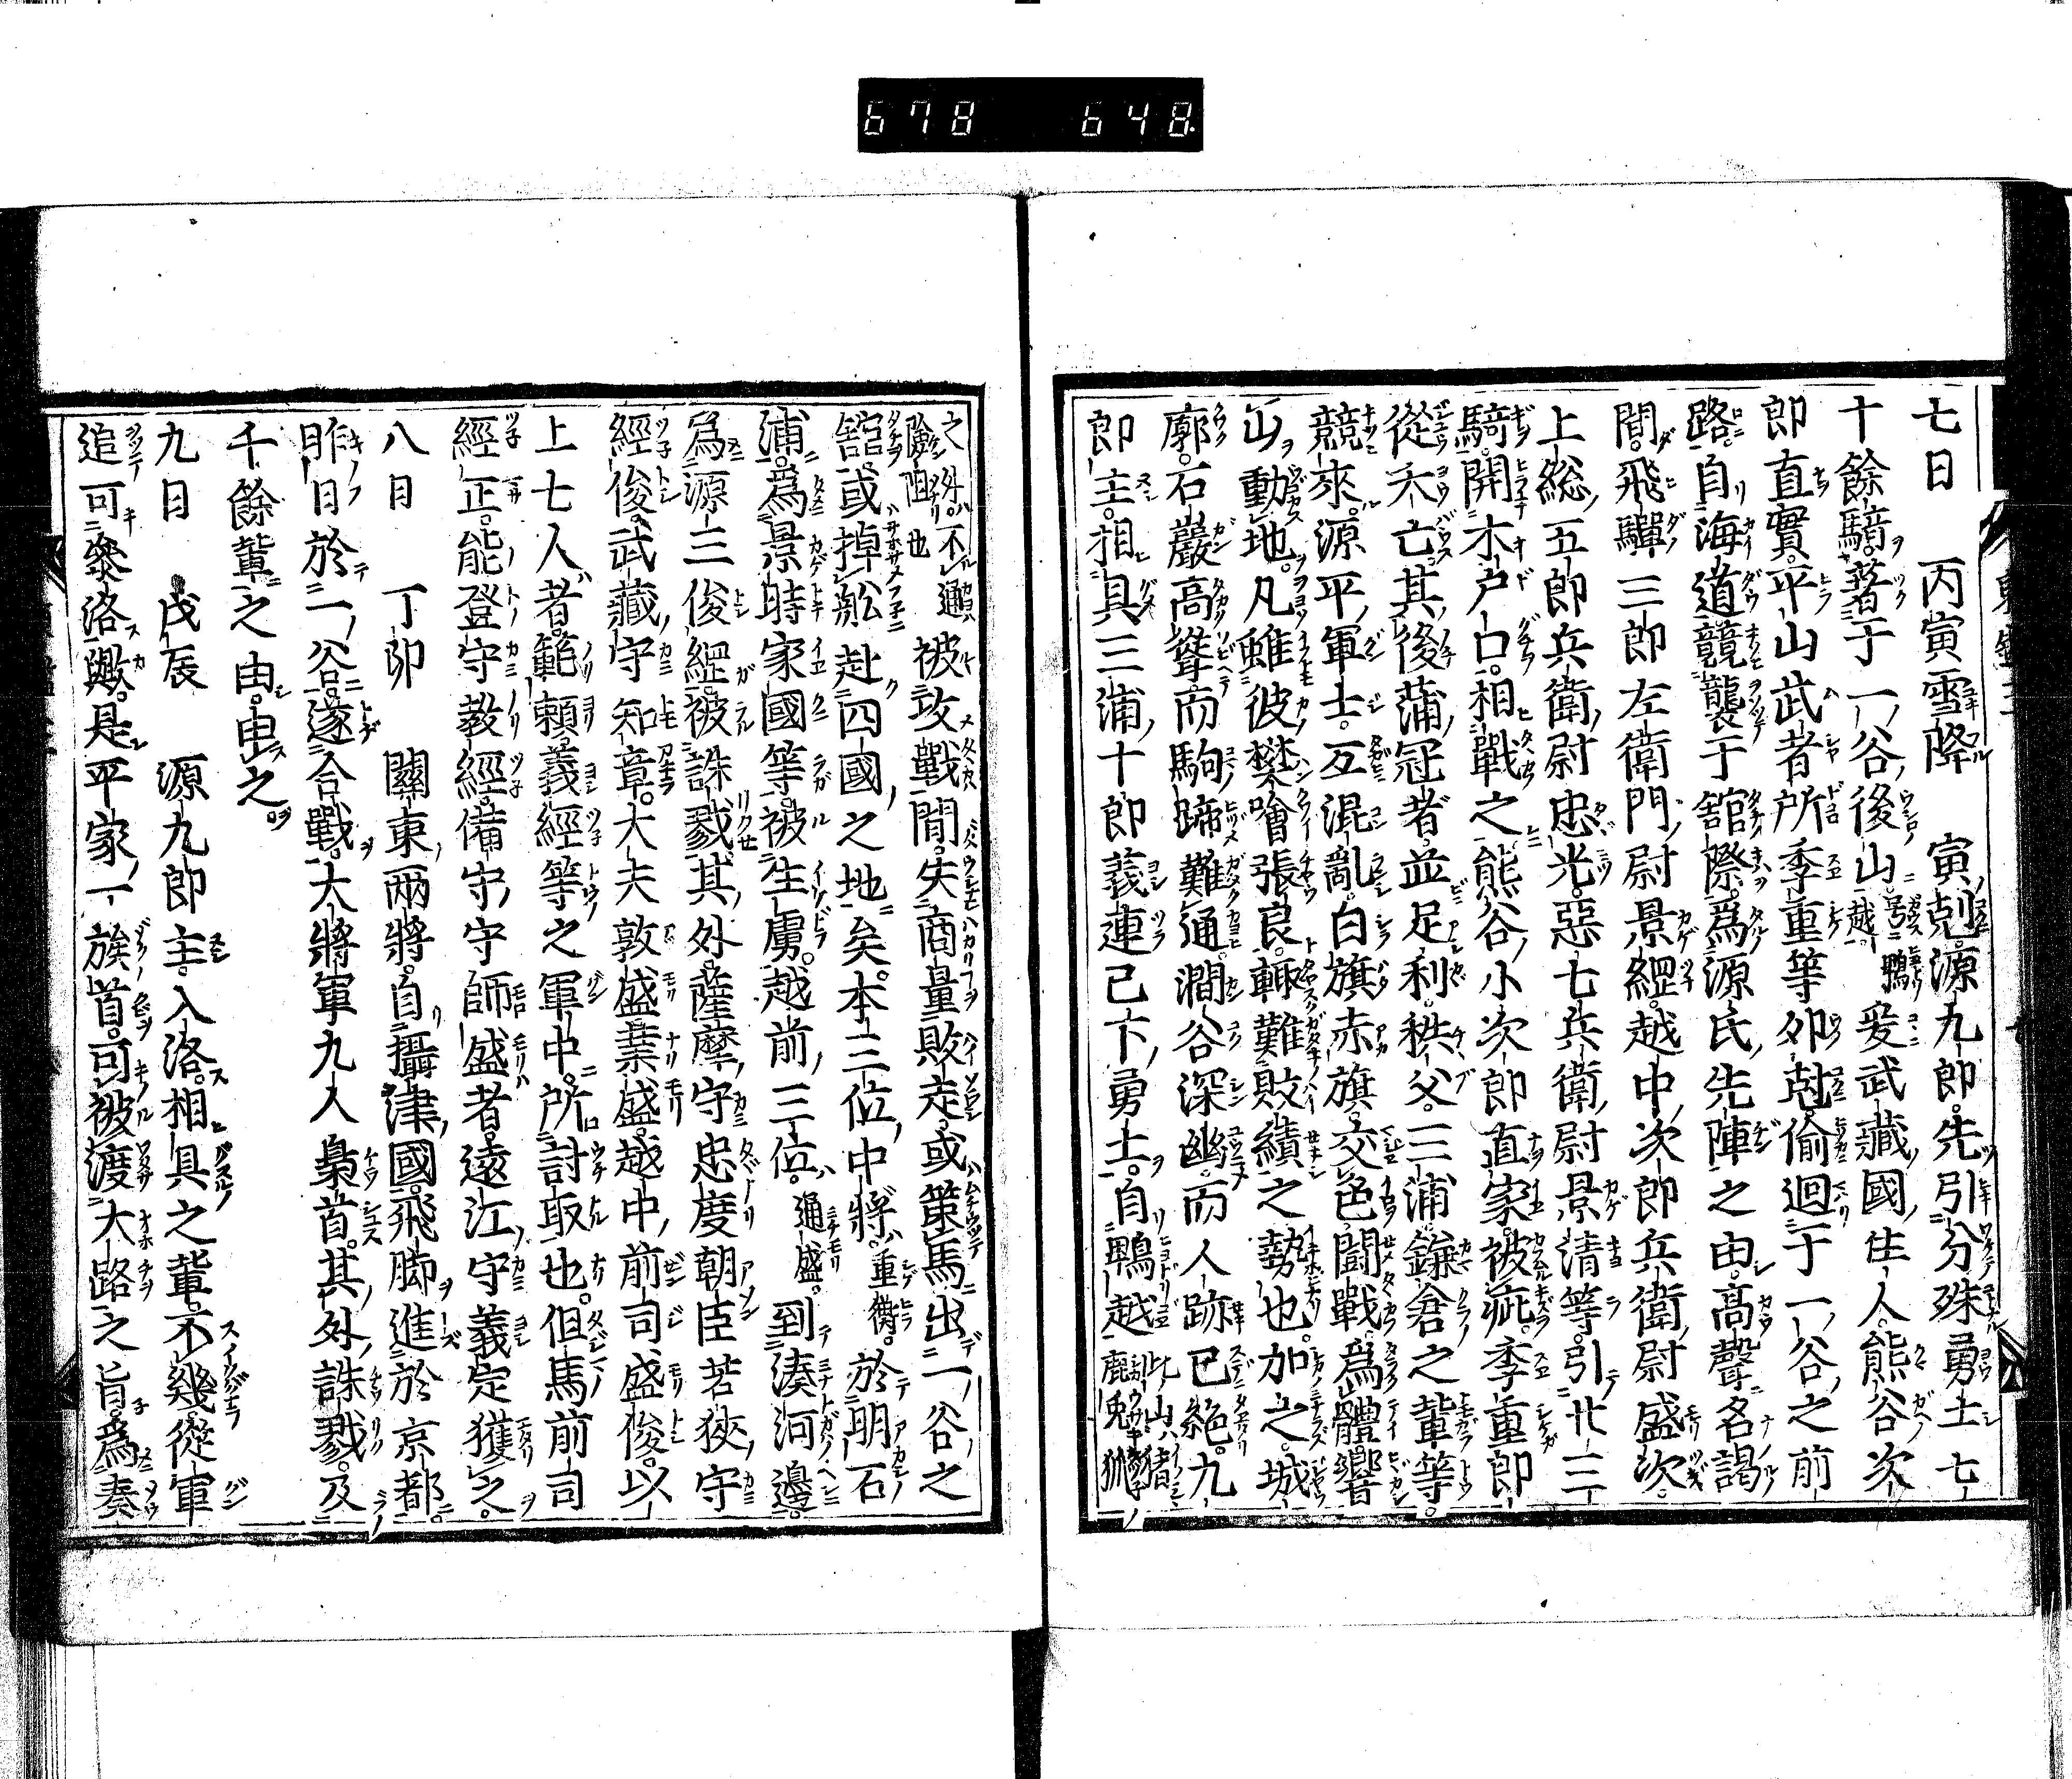 678 648
七日 丙寅雪降 寅剋源九郎先引分殊勇士七
十餘騎著于一谷後山号鵯越爰武藏國住人熊谷次
郎直實平山武者所季重等卯剋偷迴于一谷之前
路自海道競襲于舘際爲源氏先陣之由高聲名謁
間飛驒三郎左衛門尉景經越中次郎兵衛尉盛次
上総五郎兵衛尉忠光惡七兵衛尉景清等引廿三
騎開木戸口相戰之熊谷小次郎直家被疵季重郎
從夭亡其後蒲冠者並足利秩父三浦鎌倉之輩等
競來源平軍士互混亂白旗赤旗交色闘戰爲體響
山動地凡雖彼樊噲張良輙難敗績之勢也加之城
廓石巖高聳而駒蹄難通澗谷深幽而人跡已絶九
郎主相具三浦十郎義連已下勇士自鵯越此山猪鹿兎狐
之外不通險阻也被攻戰間失商量敗走或策馬出一谷之
舘或掉舩赴四國之地矣本三位中將重衡於明石
浦爲景時家國等被生虜越前三位通盛到湊河邊
爲源三俊經被誅戮其外薩摩守忠度朝臣若狹守
經俊武藏守知章大夫敦盛業盛越中前司盛俊以
上七人者範頼義經等之軍中所討取也但馬前司
經正能登守教經備中守師盛者遠江守義定獲之
八日 丁卯 關東兩將自攝津國飛脚進於京都
昨日於一谷遂合戰大將軍九人梟首其外誅戮及
千餘輩之由申之
九日 戊辰 源九郎主入洛相具之輩不幾從軍
追可參洛歟是平家一族首可被渡大路之旨爲奏